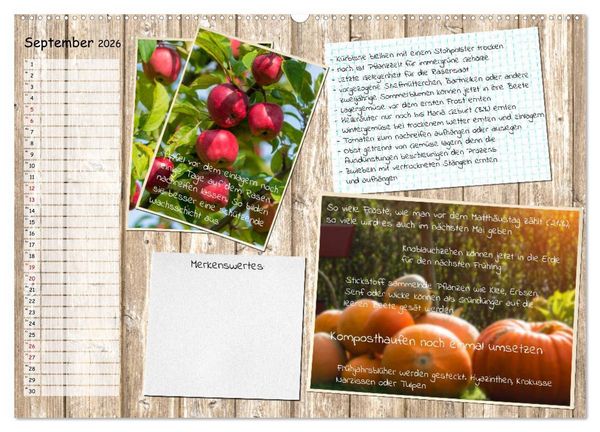 September 2026
1
2
3
4
5
6
7
8
9
10
11
12
13
14
15
16
17
18
19
20
21
22
23
24
25
26
27
28
29
30
Äpfel vor dem einlagern noch
einige Tage auf dem Rasen
nachreifen lassen. So bilden
sie besser eine schützende
Wachsschicht aus
Merkenswertes
- Kürbisse bleiben mit einem Strohpolster trocken
- noch ist Pflanzzeit für immergrüne Gehölze
- Letzte Gelegenheit für die Rasensaat
- vorgezogene Stiefmütterchen, Bartnelken oder andere
zweijährige Sommerblumen können jetzt in ihre Beete
- Lagergemüse vor dem ersten Frost ernten
- Heilkräuter nur noch bis Mariä Geburt (8.9.) ernten
- Wintergemüse bei trockenem Wetter ernten und einlagern
- Tomaten zum nachreifen aufhängen oder auslegen
- Obst getrennt von Gemüse lagern, denn die
Ausdünstungen beschleunigen den Prozess
- Zwiebeln mit vertrockneten Stängeln ernten
und aufhängen
So viele Fröste, wie man vor dem Matthäustag zählt (21.9.),
so viele wird es auch im nächsten Mai geben
Knoblauchzehen können jetzt in die Erde
für den nächsten Frühling
Stickstoff sammelnde Pflanzen wie Klee, Erbsen,
Senf oder Wicke können als Gründünger auf die
leeren Beete gesät werden
Komposthaufen noch einmal umsetzen
Frühjahrsblüher werden gesteckt: Hyazinthen, Krokusse
Narzissen oder Tulpen